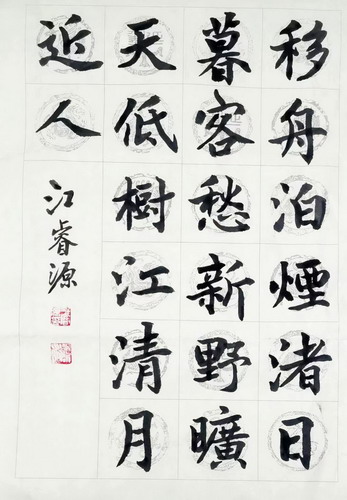 移舟泊煙渚日
暮客愁新野曠
天低樹江清月
近人
江睿源